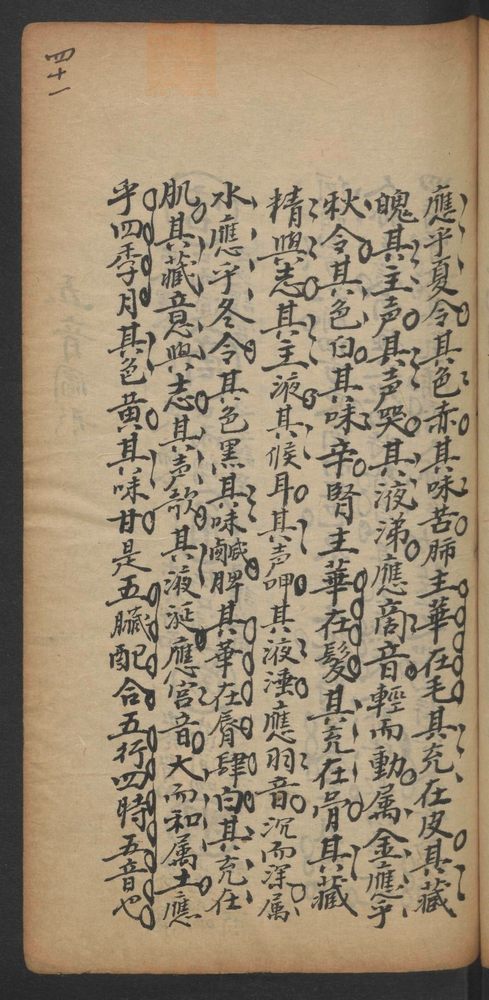 四十一
應乎夏令其色赤其味苦肺主華在毛其充在皮其藏
魄其主声其声哭其液涕應商音輕而動属金應乎
秋令其色白其味辛腎主華在髮其充在骨其藏
精與志其主液其候耳其声呻其液涶應羽音沉而深属
水應乎冬令其色黑其味鹹脾其華在脣肆白其充在
肌其藏意與志其声歌其液涎應宫音大而和属土應
乎四季月其色黄其味甘是五臓配合五行四時五音也